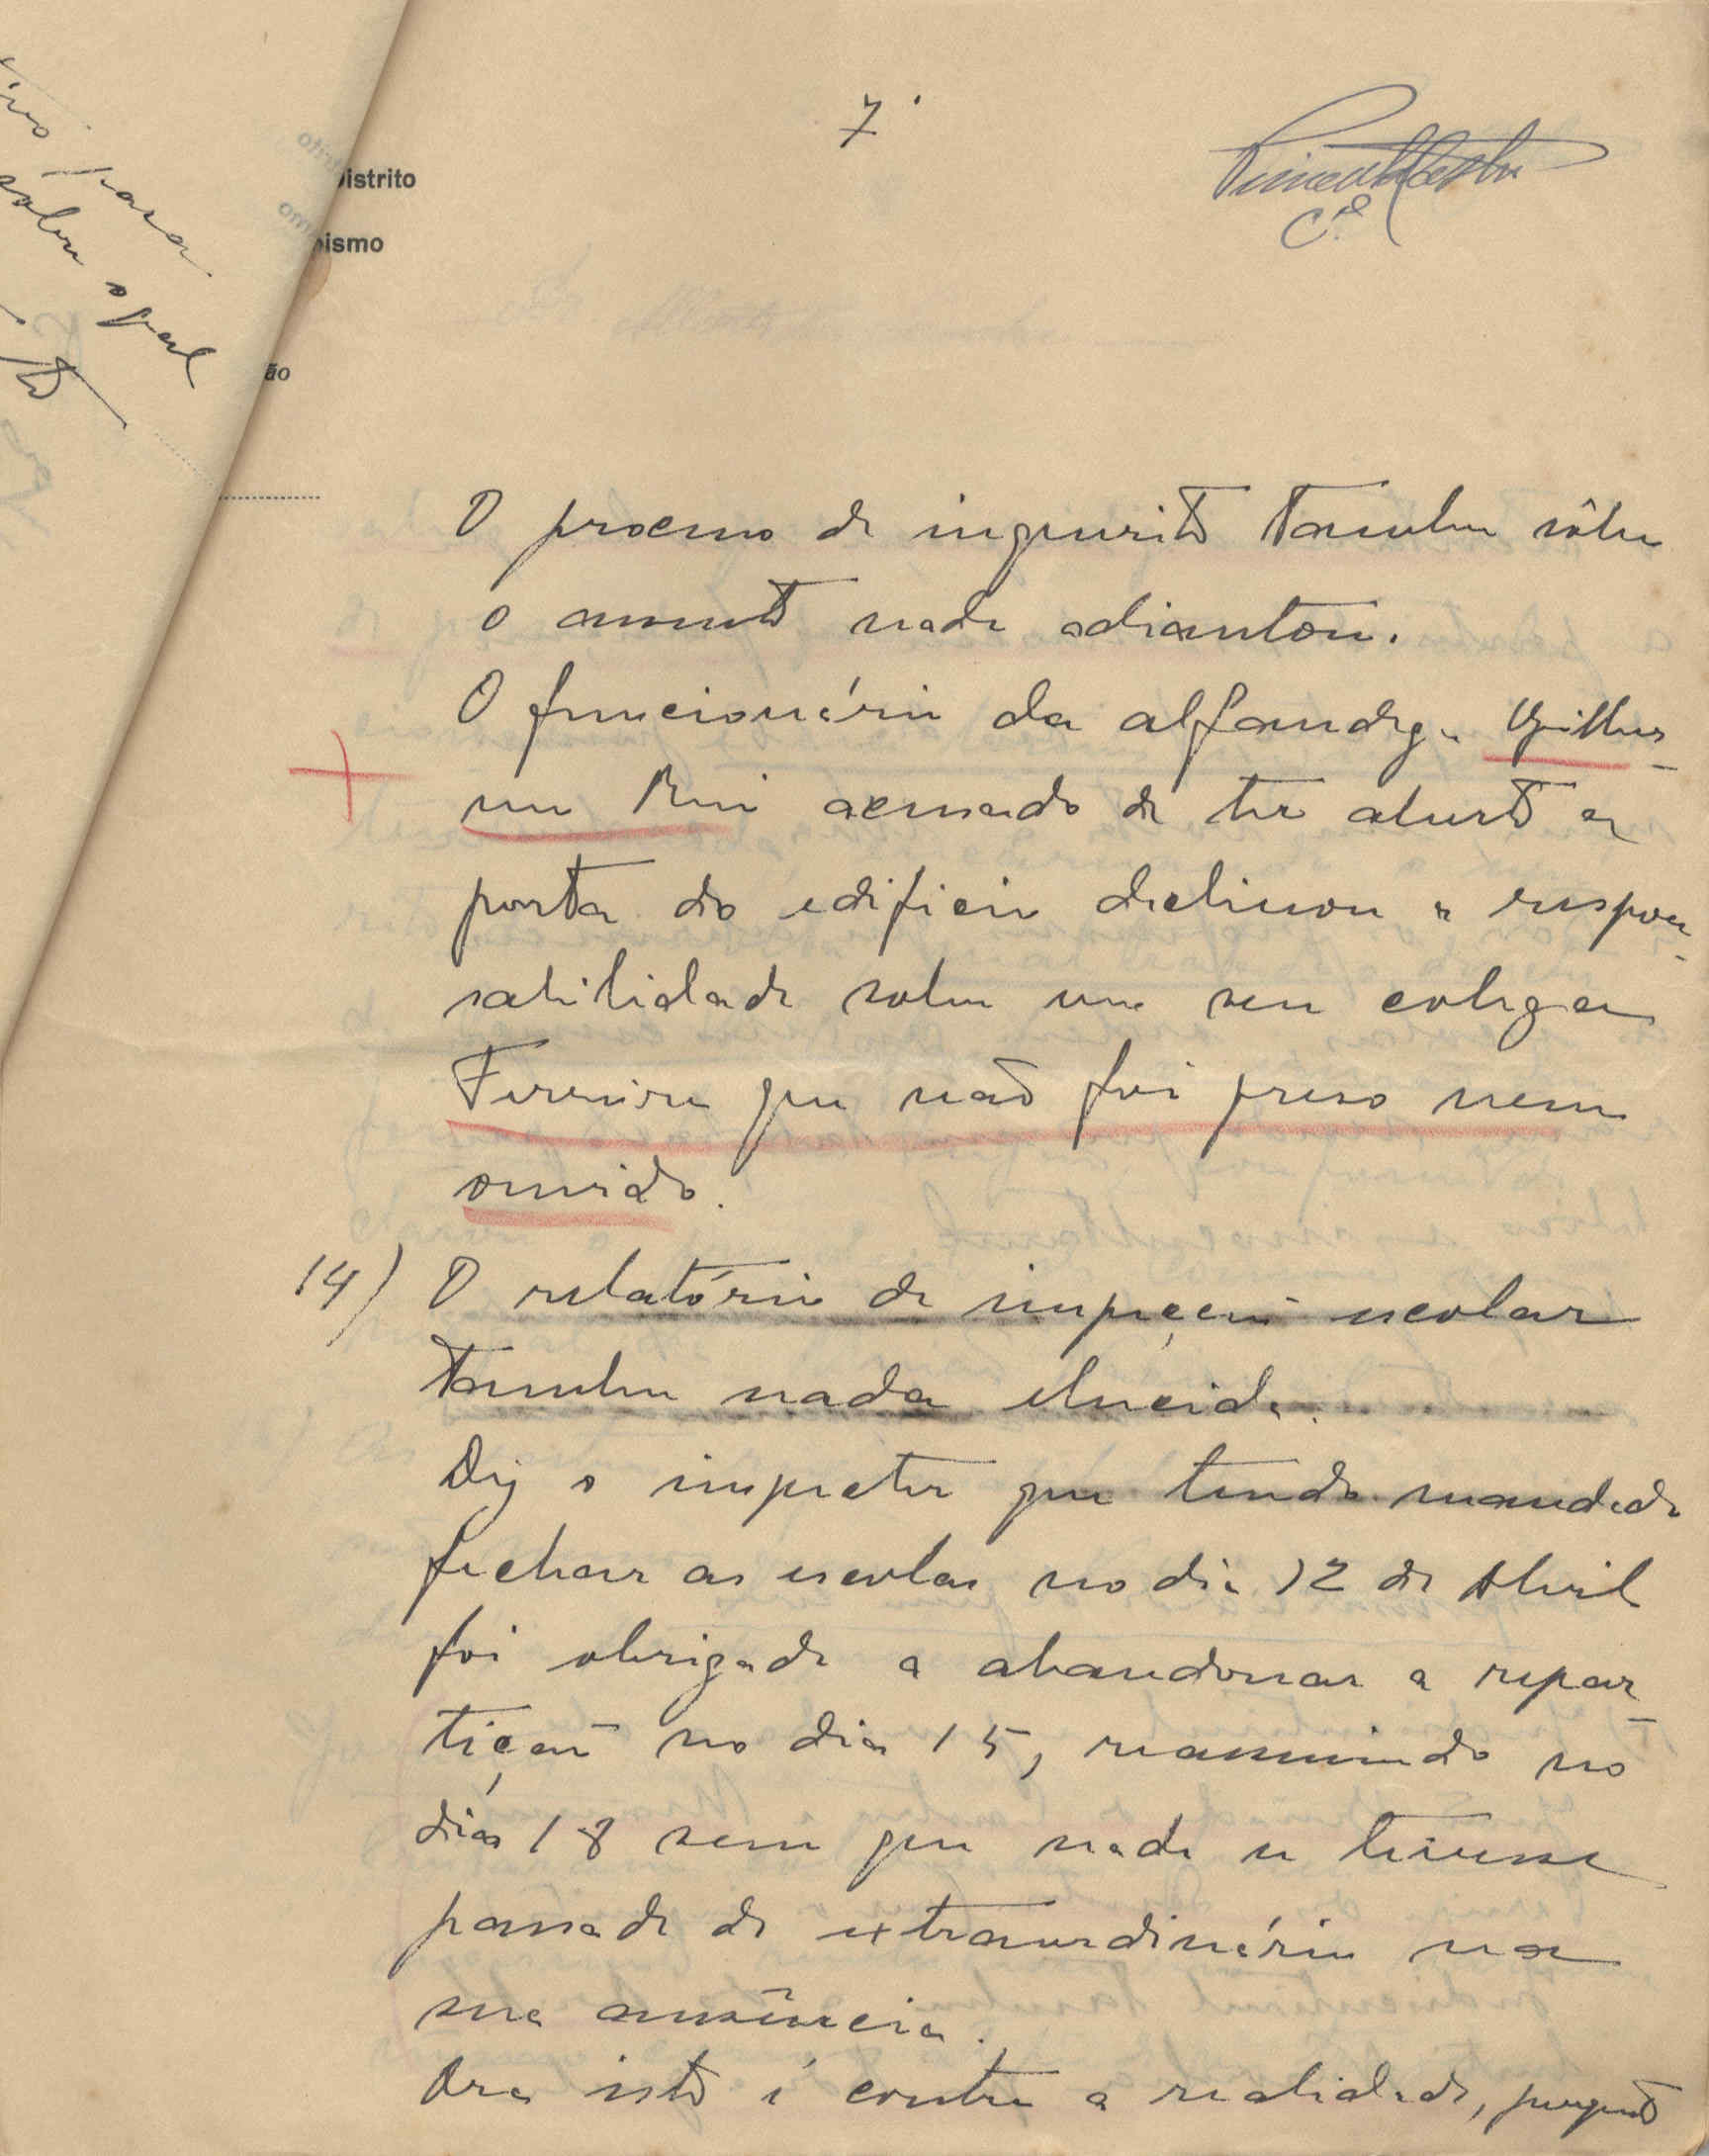 7
Pimenta de Castro
C.el
ivo para
sobre o qual
Distrito
bismo
ão
O processo de inquerito tambem sôbre
o assunto nada adiantou.
O funcionário da alfandega Guilher-
me Rui acusado de ter aberto a
porta do edificio declinou a respon-
sabilidade sobre um seu colega
Ferreira que não foi preso nem
ouvido.
14) O relatório da inspeção escolar
tambem nada elucida.
Diz o inspector que tendo mandado
fechar as escolas no dia 12 de Abril
foi obrigado a abandonar a repar-
tição no dia 15, reassumindo no
dia 18 sem que nada se tivesse
passado de extraordinário na
sua ausência.
Ora isto é contra a realidade, porquanto